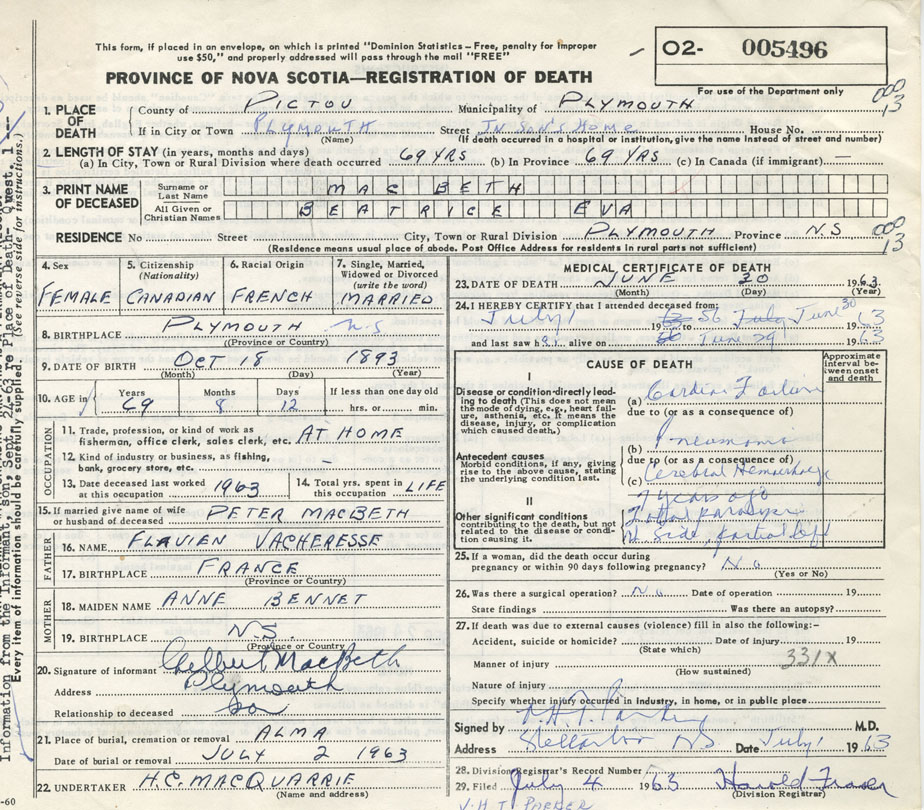 This form, if placed in an envelope, on which is printed "Dominion Statistics – Free, penalty for improper
use $50," and properly addressed will pass through the mail "FREE"
O2- 005496
For use of the Department only
PROVINCE OF NOVA SCOTIA—REGISTRATION OF DEATH
000
13
1. PLACE OF DEATH
County of PICTOU Municipality of PLYMOUTH
If in City or Town PLYMOUTH Street IN SON'S HOME House No.
(Name) (If death occurred in a hospital or institution, give the name instead of street and number)
2. LENGTH OF STAY (in years, months and days)
(a) In City, Town or Rural Division where death occurred 69 YRS (b) In Province 69 YRS (c) In Canada (if immigrant) —
3. PRINT NAME OF DECEASED
Surname or Last Name MACBETH
All Given or Christian Names BEATRICE EVA
RESIDENCE No Street City, Town or Rural Division PLYMOUTH Province N.S
000
13
(Residence means usual place of abode. Post Office Address for residents in rural parts not sufficient)
4. Sex
FEMALE
5. Citizenship (Nationality)
CANADIAN
6. Racial Origin
FRENCH
7. Single, Married, Widowed or Divorced (write the word)
MARRIED
8. BIRTHPLACE PLYMOUTH N.S
(Province or Country)
9. DATE OF BIRTH OCT 18 1893
(Month) (Day) (Year)
10. AGE in Years Months Days If less than one day old
69 8 12 hrs. or min.
OCCUPATION
11. Trade, profession, or kind of work as
fisherman, office clerk, sales clerk, etc. AT HOME
12. Kind of industry or business, as fishing,
bank, grocery store, etc. –
13. Date deceased last worked at this occupation 1963
14. Total yrs. spent in this occupation LIFE
15. If married give name of wife
or husband of deceased PETER MACBETH
FATHER
16. NAME FLAVIEN VACHERESSE
17. BIRTHPLACE FRANCE
(Province or Country)
MOTHER
18. MAIDEN NAME ANNE BENNET
19. BIRTHPLACE N.S.
(Province or Country)
20. Signature of informant MacBeth
Address Plymouth
Relationship to deceased Son
21. Place of burial, cremation or removal ALMA
Date of burial or removal JULY 2 1963
22. UNDERTAKER H.C. MACQUARRIE
(Name and address)
MEDICAL CERTIFICATE OF DEATH
23. DATE OF DEATH JUNE 30 1963
(Month) (Day) (Year)
24. I HEREBY CERTIFY that I attended deceased from:
July 1 19 56 to June 30 1963
and last saw h alive on June 29 1963
CAUSE OF DEATH
Approximate interval between onset and death
I
Disease or condition directly leading to death (This does not mean the mode of dying, e.g., heart failure, asthenia, etc. It means the disease, injury, or complication which caused death.)
(a) Cardiac Failure
due to (or as a consequence of)
Antecedent causes
Morbid conditions, if any, giving rise to the above cause, stating the underlying condition last.
(b) Pneumonia
due to (or as a consequence of)
(c) Cerebral Hemorrhage
7 years ago
II
Other significant conditions
contributing to the death, but not related to the disease or condition causing it.
Total paralysis
side, partial left
25. If a woman, did the death occur during
pregnancy or within 90 days following pregnancy? No
(Yes or No)
26. Was there a surgical operation? No Date of operation 19
State findings Was there an autopsy?
27. If death was due to external causes (violence) fill in also the following:–
Accident, suicide or homicide? Date of injury 19
(State which)
Manner of injury 331X
(How sustained)
Nature of injury
Specify whether injury occurred in Industry, in home, or in public place
Signed by M.D.
Address Stellarton NS Date July 1 1963
28. Division Registrar's Record Number
29. Filed July 4 1963 Harold Fraser
(Division Registrar)
-60
Every item of information should be carefully supplied. (See reverse side for instructions.)